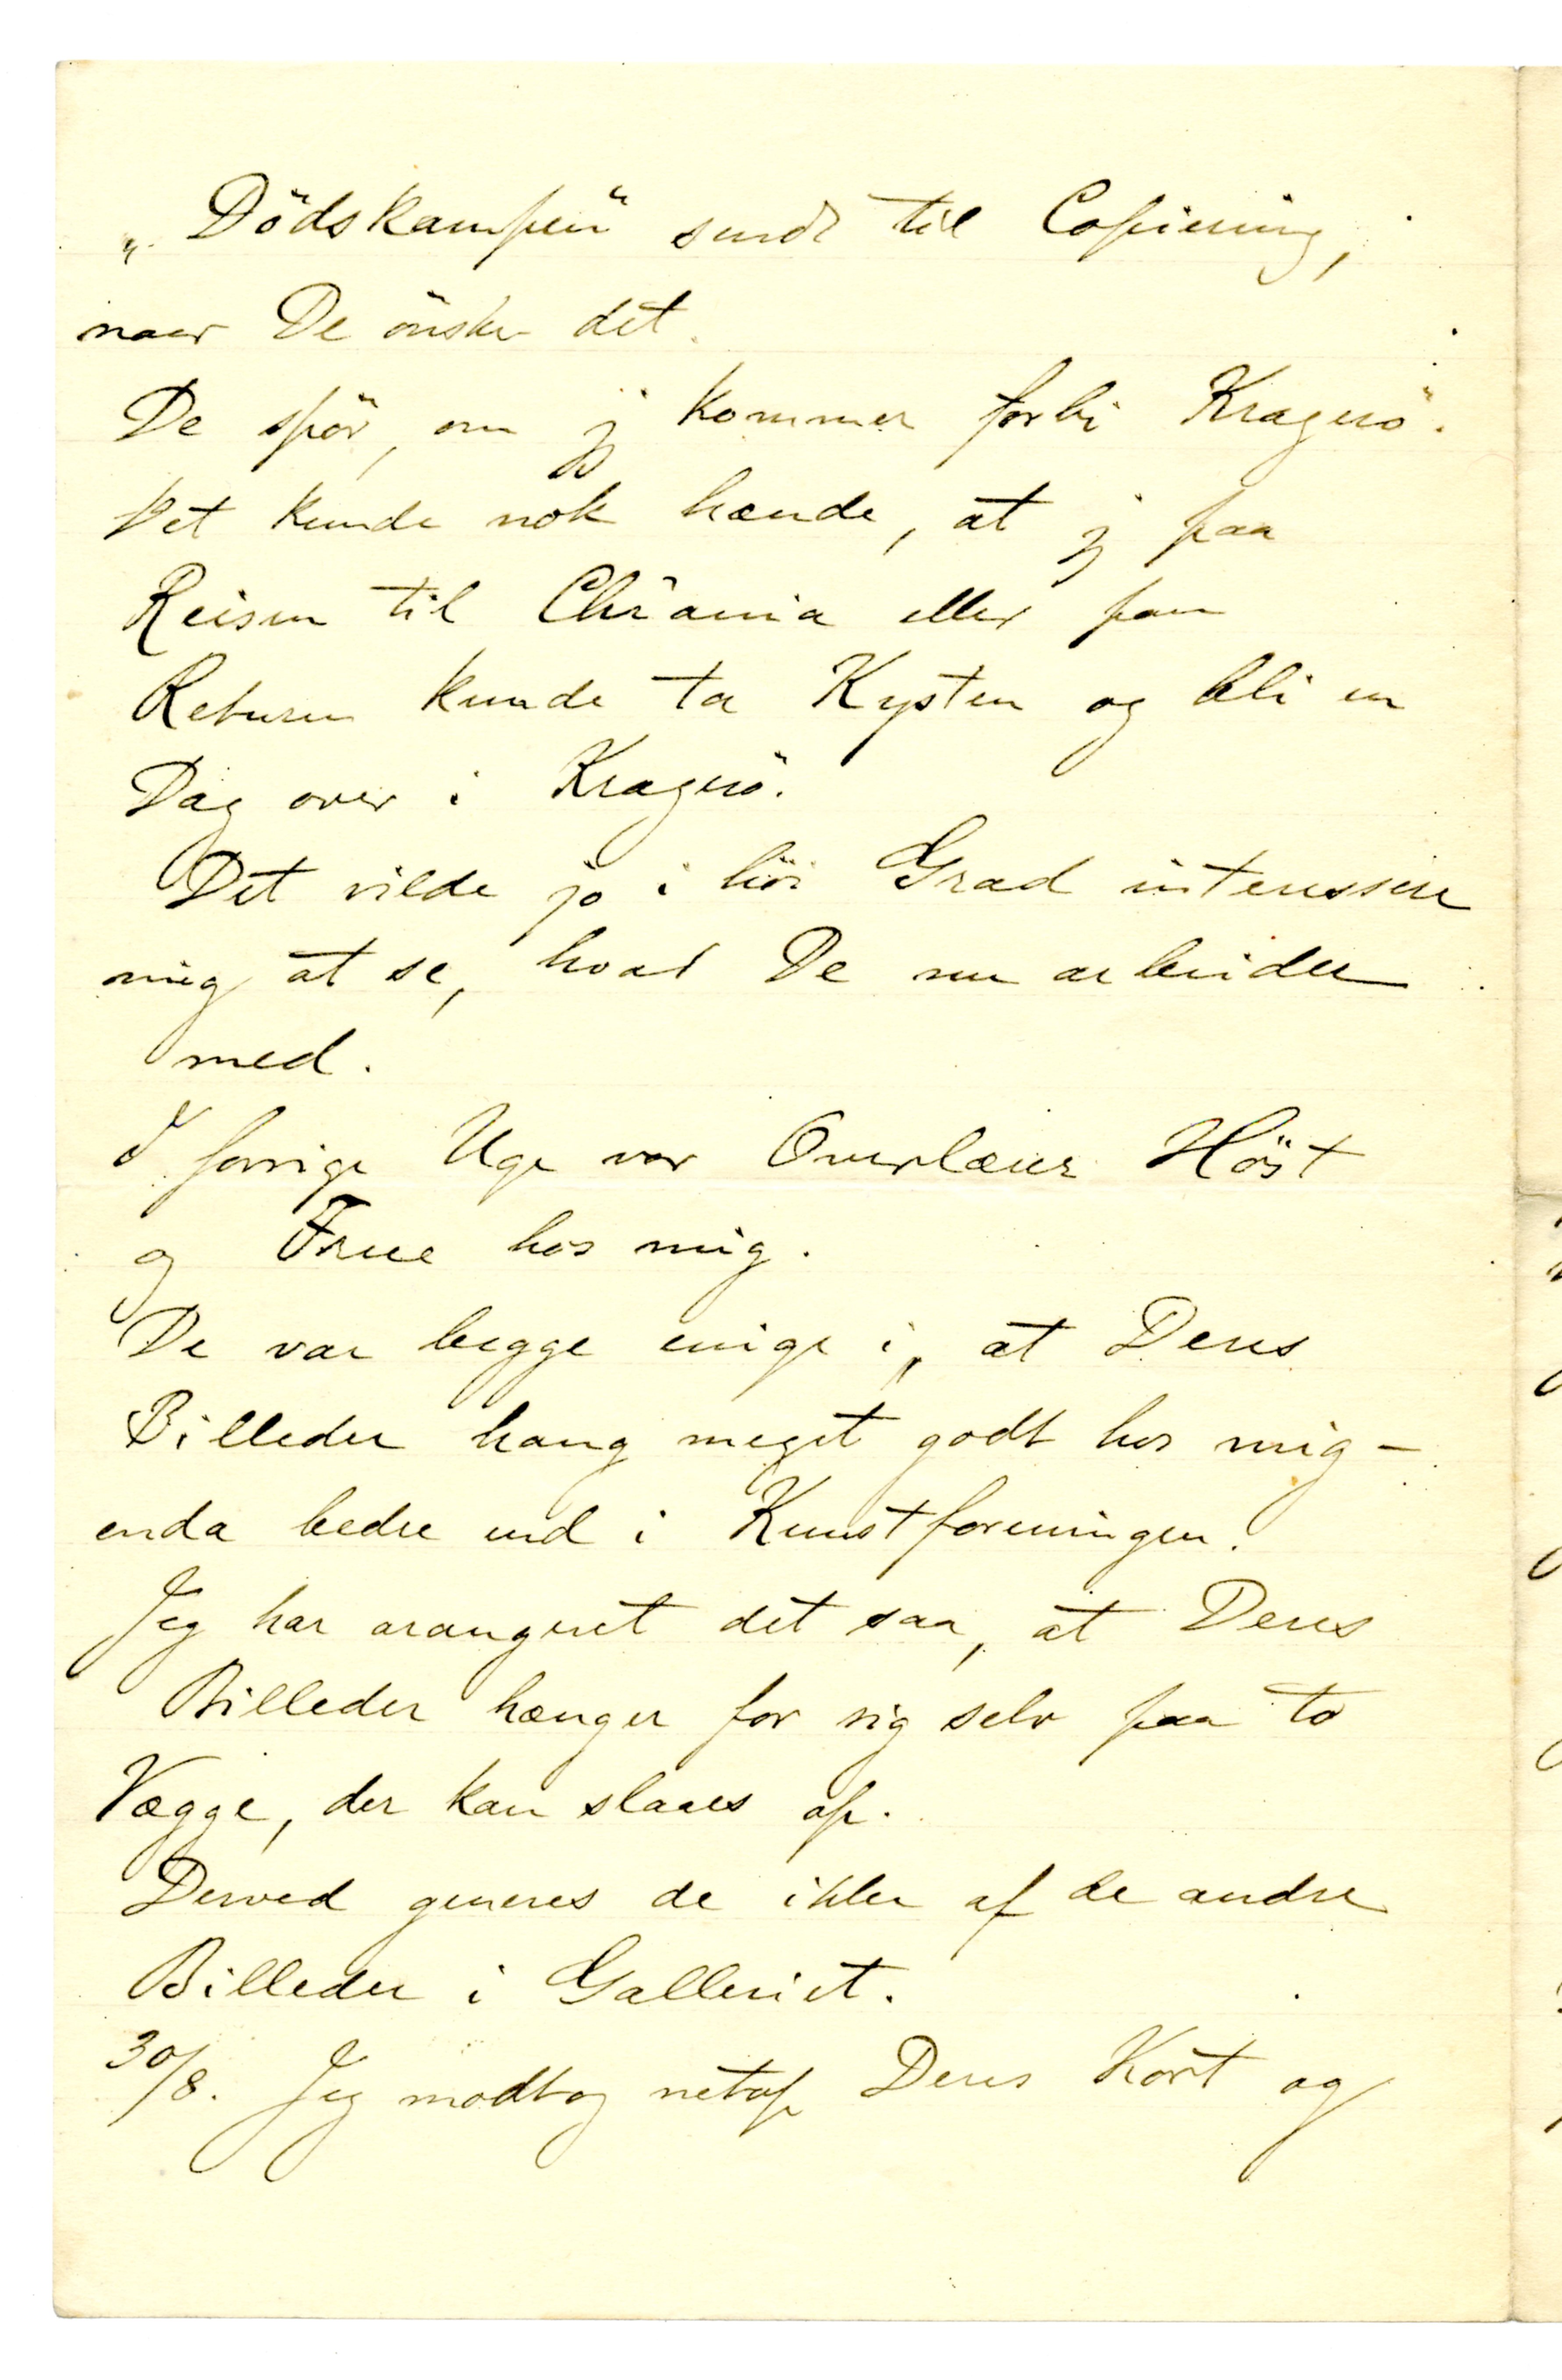 „Dödskampen" sendt til Copiering,
naar De önsker det.
De spör, om jg kommer forbi Kragerö.
Det kunde nok hænde, at jg paa
Reisen til Chrania eller paa
Returen kunde ta Kysten og bli en
Dag over i Kragerö.
Det vilde jo i höi Grad interessere
mig at se, hvad De nu arbeider
med.
I forrige Uge var Overlærer Höst
og Frue hos mig.
De var begge enige i, at Deres
Billeder hang meget godt hos mig –
enda bedre end i Kunstforeningen.
Jeg har arangeret det saa, at Deres
Billeder hænger for sig selv paa to
Vægge, der kan slaaes op.
Derved generes de ikke af de andre
Billeder i Galleriet.
30/8. Jeg modtog netop Deres Kort og